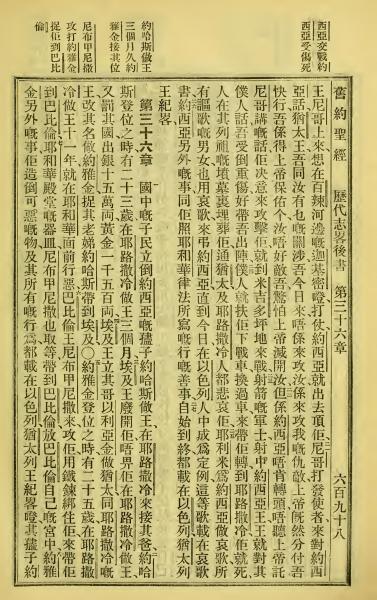 西亞交戰約
西亞受傷死
約哈斯做王
三個月久約
雅金接其位
尼布甲尼撒
攻打約雅金
捉佢到巴比
倫
舊約聖經 歷代志畧後書 第三十六章 六百九十八
王尼哥上來想在百辣河邊嘅迦基密磴打仗約西亞就出去頂佢尼哥打發使者來對約西
亞話猶太王吾同汝有乜嘅關涉吾今日來唔係來攻汝係來攻我嘅仇敵上帝既然分付吾
快行吾係得上帝保佑个汝唔好敵吾驚怕上帝滅開汝但係約西亞唔肯轉頭唔聽上帝託
尼哥講嘅話佢决意來攻擊佢就到米吉多坪地來戰射箭嘅軍士射中約西亞王王就對其
僕人話吾受倒重傷好帶吾出陣僕人就扶佢下戰車換過車來帶佢轉到耶路撒冷佢就死
人在其列祖嘅墳墓裏埋葬佢通猶太及耶路撒冷人都悲哀佢耶利米爲約西亞做哀歌所
有謳歌嘅男女也用哀歌來弔約西亞直到今日在以色列人中成爲定例這等歌載在哀歌
書約西亞另外嘅事同佢照耶和華律法所寫嘅行嘅善事自始到終都載在以色列猶大列
王紀畧
第三十六章 國中嘅子民立倒約西亞嘅儘子約哈斯做王在耶路撒冷來接其爸約哈
斯登位之時有二十三歲在耶路撒冷做王三個月埃及王廢開佢唔畀佢在耶路撒冷做王
又罰其國出銀十五萬両黃金一千五百両埃及王立其哥以利亞金做猶太同耶路撒冷嘅
王改其名做約雅金捉其老娣約哈斯帶到埃及〇約雅金登位之時有二十五歲在耶路撒
冷做王十一年就在耶和華面前行惡巴比倫王尼布甲尼撒來攻佢用鐵鍊綁住佢來帶佢
到巴比倫耶和華殿堂嘅器皿尼布甲尼撒也取等帶到巴比倫放巴比倫自己嘅宮中約雅
金另外嘅事佢造倒可惡嘅物及其所有嘅行爲都載在以色列猶大列王紀畧磴其儘子約